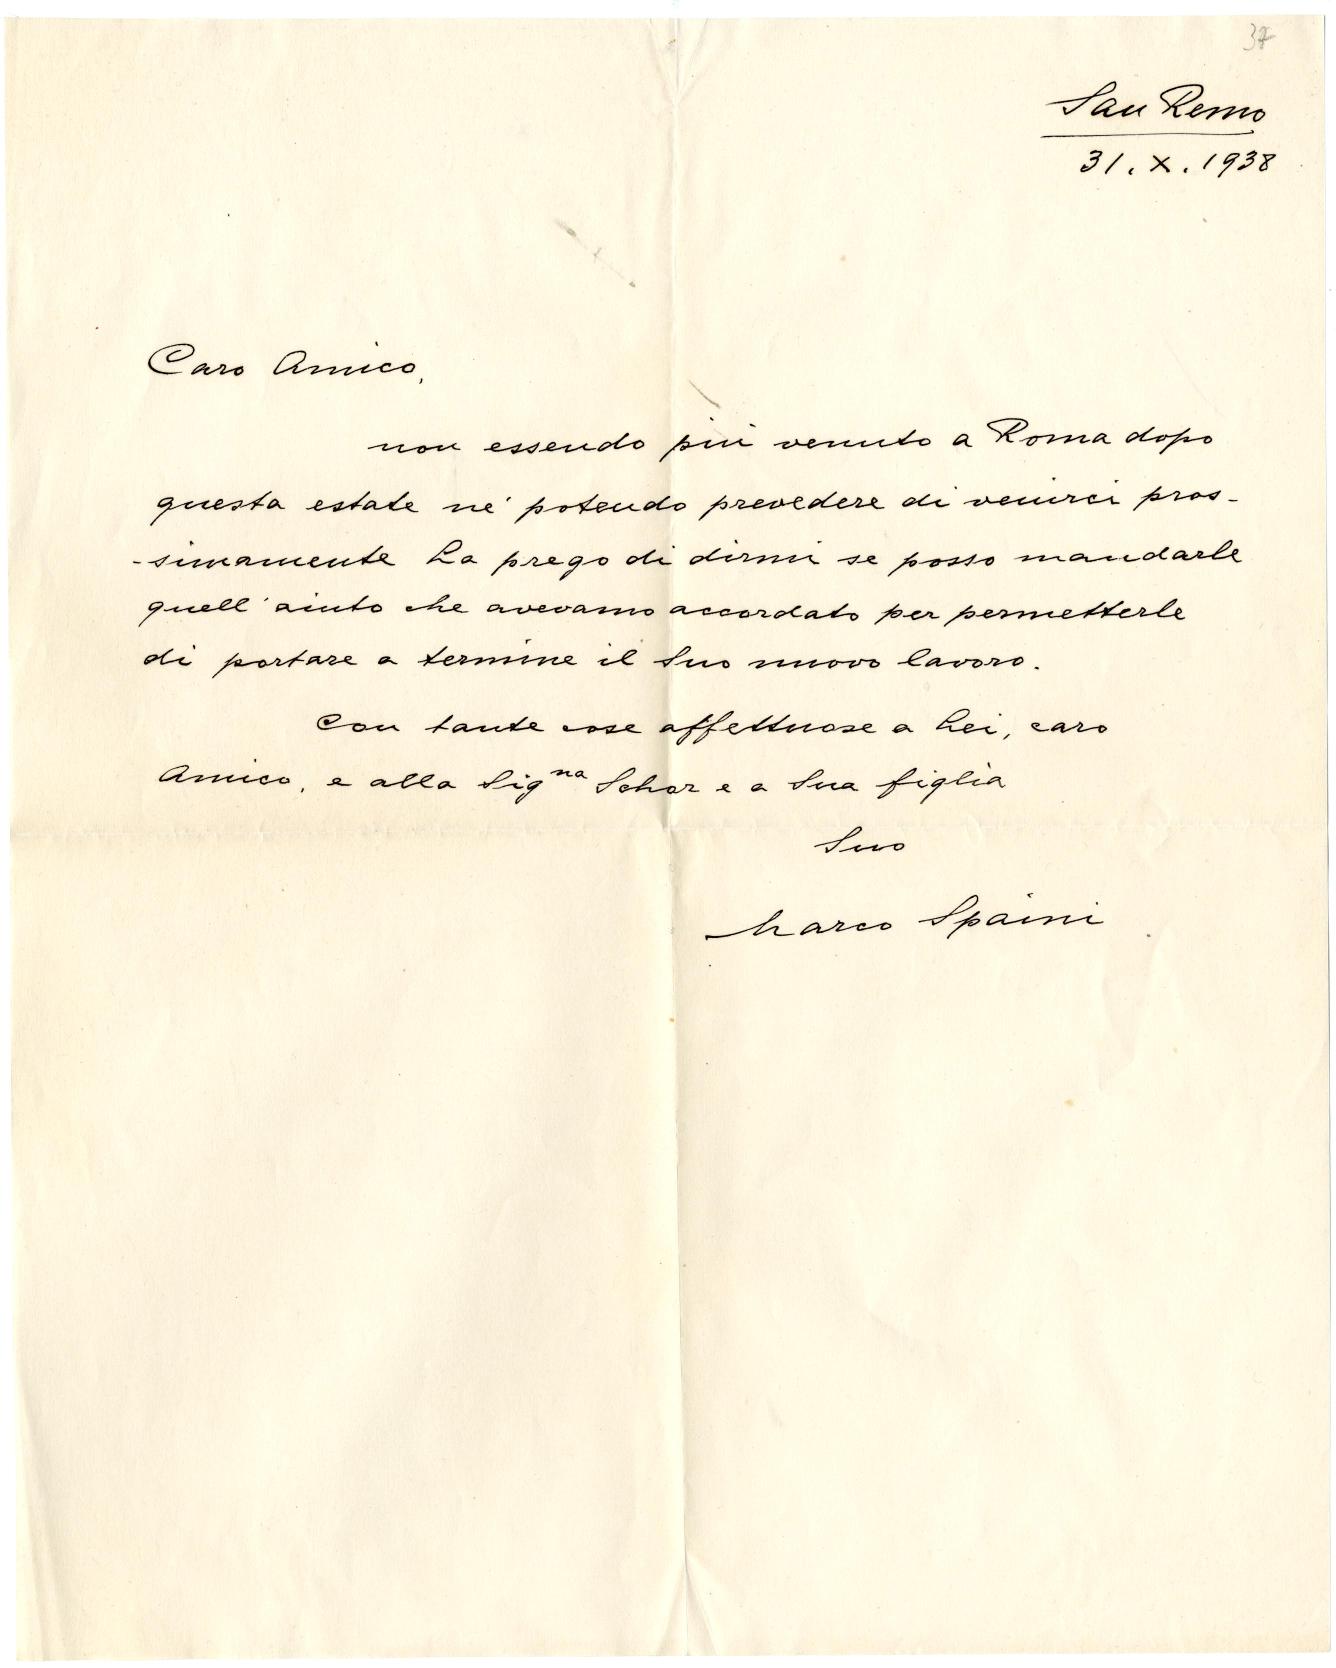 San Remo
31. X. 1938
Caro Amico,
non essendo più venuto a Roma dopo
questa estate né potendo prevedere di venirci pros-
-simamente La prego di dirmi se posso mandarle
quell'aiuto che avevamo accordato per permetterle
di portare a termine il Suo nuovo lavoro.
Con tante cose affettuose a Lei, caro
Amico, e alla Sigⁿᵃ Schor e a Sua figlia
Suo
Marco Spaini